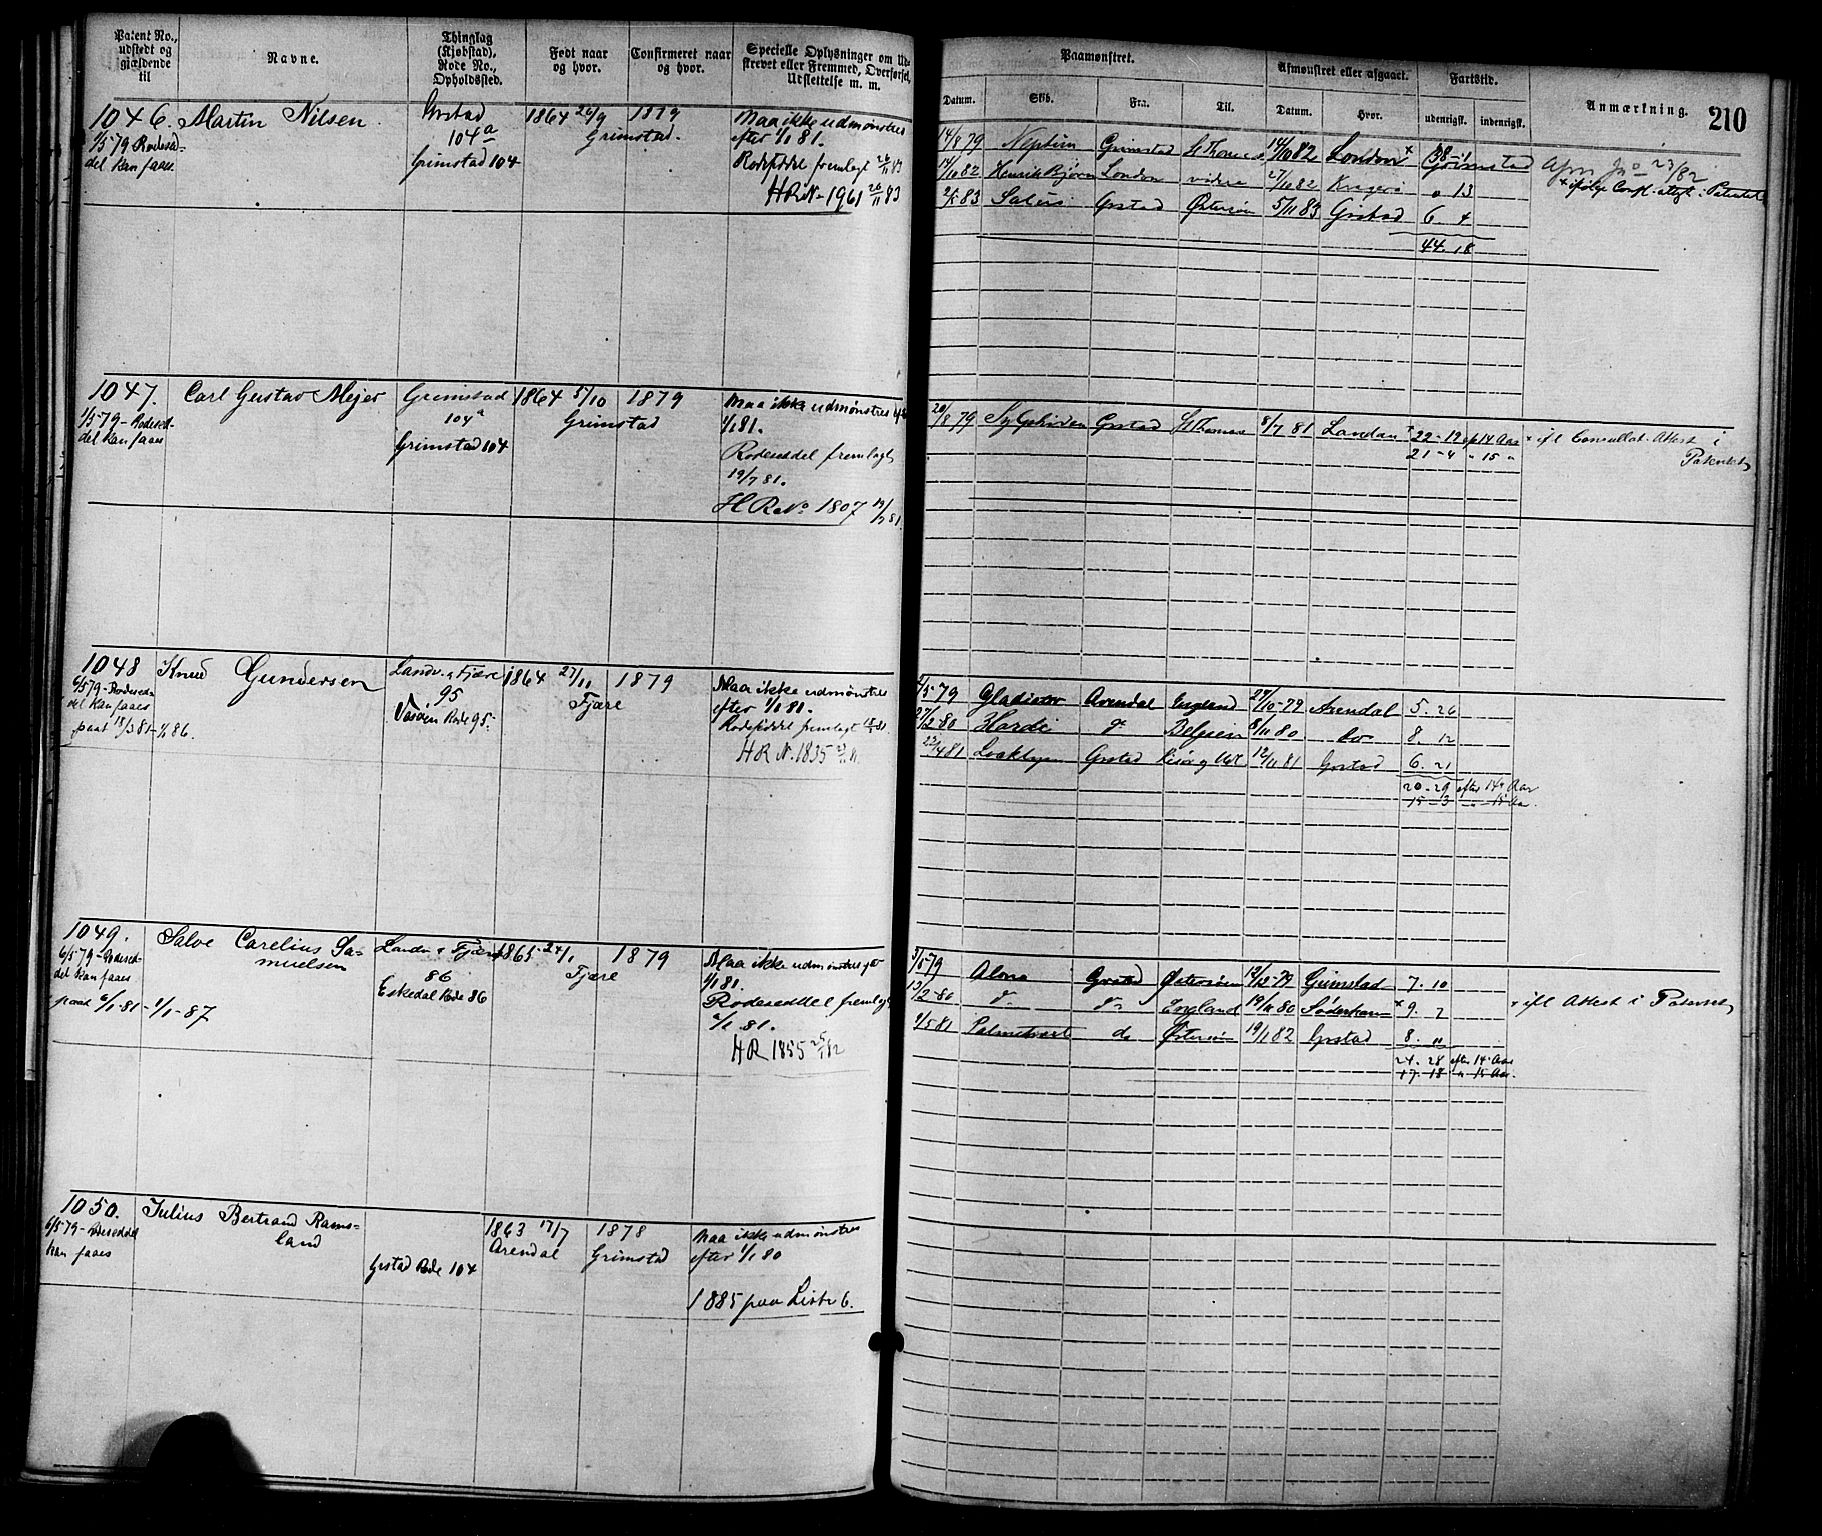 Patent No., udstedt og gjældende til
Navne.
Thinglag (Kjøbstad), Rode No., Opholdssted.
Født naar og hvor.
Confirmeret naar og hvor.
Specielle Oplysninger om Udskrevet eller Fremmed, Overførsel, Udslettelse m. m.
Paamønstret.
Datum.
Skib.
Fra.
Til.
Afmønstret eller afgaaet.
Datum.
Hvor.
Fartstid.
udenrigst.
indenrigst.
Anmærkning.
210
1046.
1/5 79 Rodesed-
del kan faaes.
Martin Nilsen
Grstad
104 a
Grimstad 104
1864 26/9
1879
Grimstad.
Maa ikke udmønstres
efter 1/1 81.
Rodeseddel fremlagt 26/11 83
HR No 1961 26/11 83
14/8 79 Neptun Grimstad St Thomas 14/10 82 London x 38 - 1
14/10 82 Henrik Bjørn London videre 27/10 82 Kragerø " 13
Salus Grstad Østersøen 5/11 83 Grstad 6. 4
44. 18
x ifølge Consl. attest i Patentet
1047.
1/5 79 - Rodesed-
del kan faaes
Carl Gustav Mejer
Grimstad
104 a
Grimstad 104
1864 5/10
1879
Grimstad
Maa ikke udmønstres efter
1/1 81.
Rodeseddel fremlagt
19/7 81.
HR No 1807 19/7 81.
20/8 79 Sylphiden Grstad St Thomas 8/7 81 London x 22 - 12 ep 14 Aar
21 - 4 " 15 "
x ifl Consulat. Attest i
Patentet
1048
6/5 79 - Rodesed-
del kan faaes
paat 18/3 81 - 1/1 86.
Knud Gundersen
Landv. & Fjære
95
Vasøen Rode 95.
1864 27/11
1879
Fjære
Maa ikke udmønstres
efter 1/1 81.
Rodeseddel fremlagt 18/3 81.
HR N. 1835
2/5 79 Gladiator Arendal England 27/10 - 79 Arendal 5. 26
27/2 - 80 Hardi do Belgien 8/11 80 do 8. 12
22/4 81 Grstad 12/11 81 Grstad 6. 21
20 - 29 efter 14 Aar
15 - 3 " 15 Aar.
1049.
6/5 79 - Rodesed-
del kan faaes
paat 6/1 - 81 - 1/1 - 87
Salve Carelius Sa-
muelsen
Landv & Fjære
86
Eskedal Rode 86
1865 24/1
1879
Fjære
Maa ikke udmønstres før
1/1 81.
Rodeseddel fremlagt
6/1 81.
HR 1855 25/1 82
3/5 79 Alma Grstad Østersøen 12/12 - 79 Grimstad 7. 10
13/2 - 80 do do England 19/11 80 Søderhamn x 9. 7
9/5 81 Grstad do Østersøen 19/1 82 Grstad 8. 11
24. 28 efter 14 Aar
17. 18 " 15 Aar.
x ifl Attest i Patentet
1050.
6/5 79 - Rodeseddel
kan faaes
Julius Bertrand Rams-
land
Grstad Rode 104
1863 17/7
Arendal
1878
Grimstad
Maa ikke udmønstres
efter 1/1 80
1885 paa Liste 6.